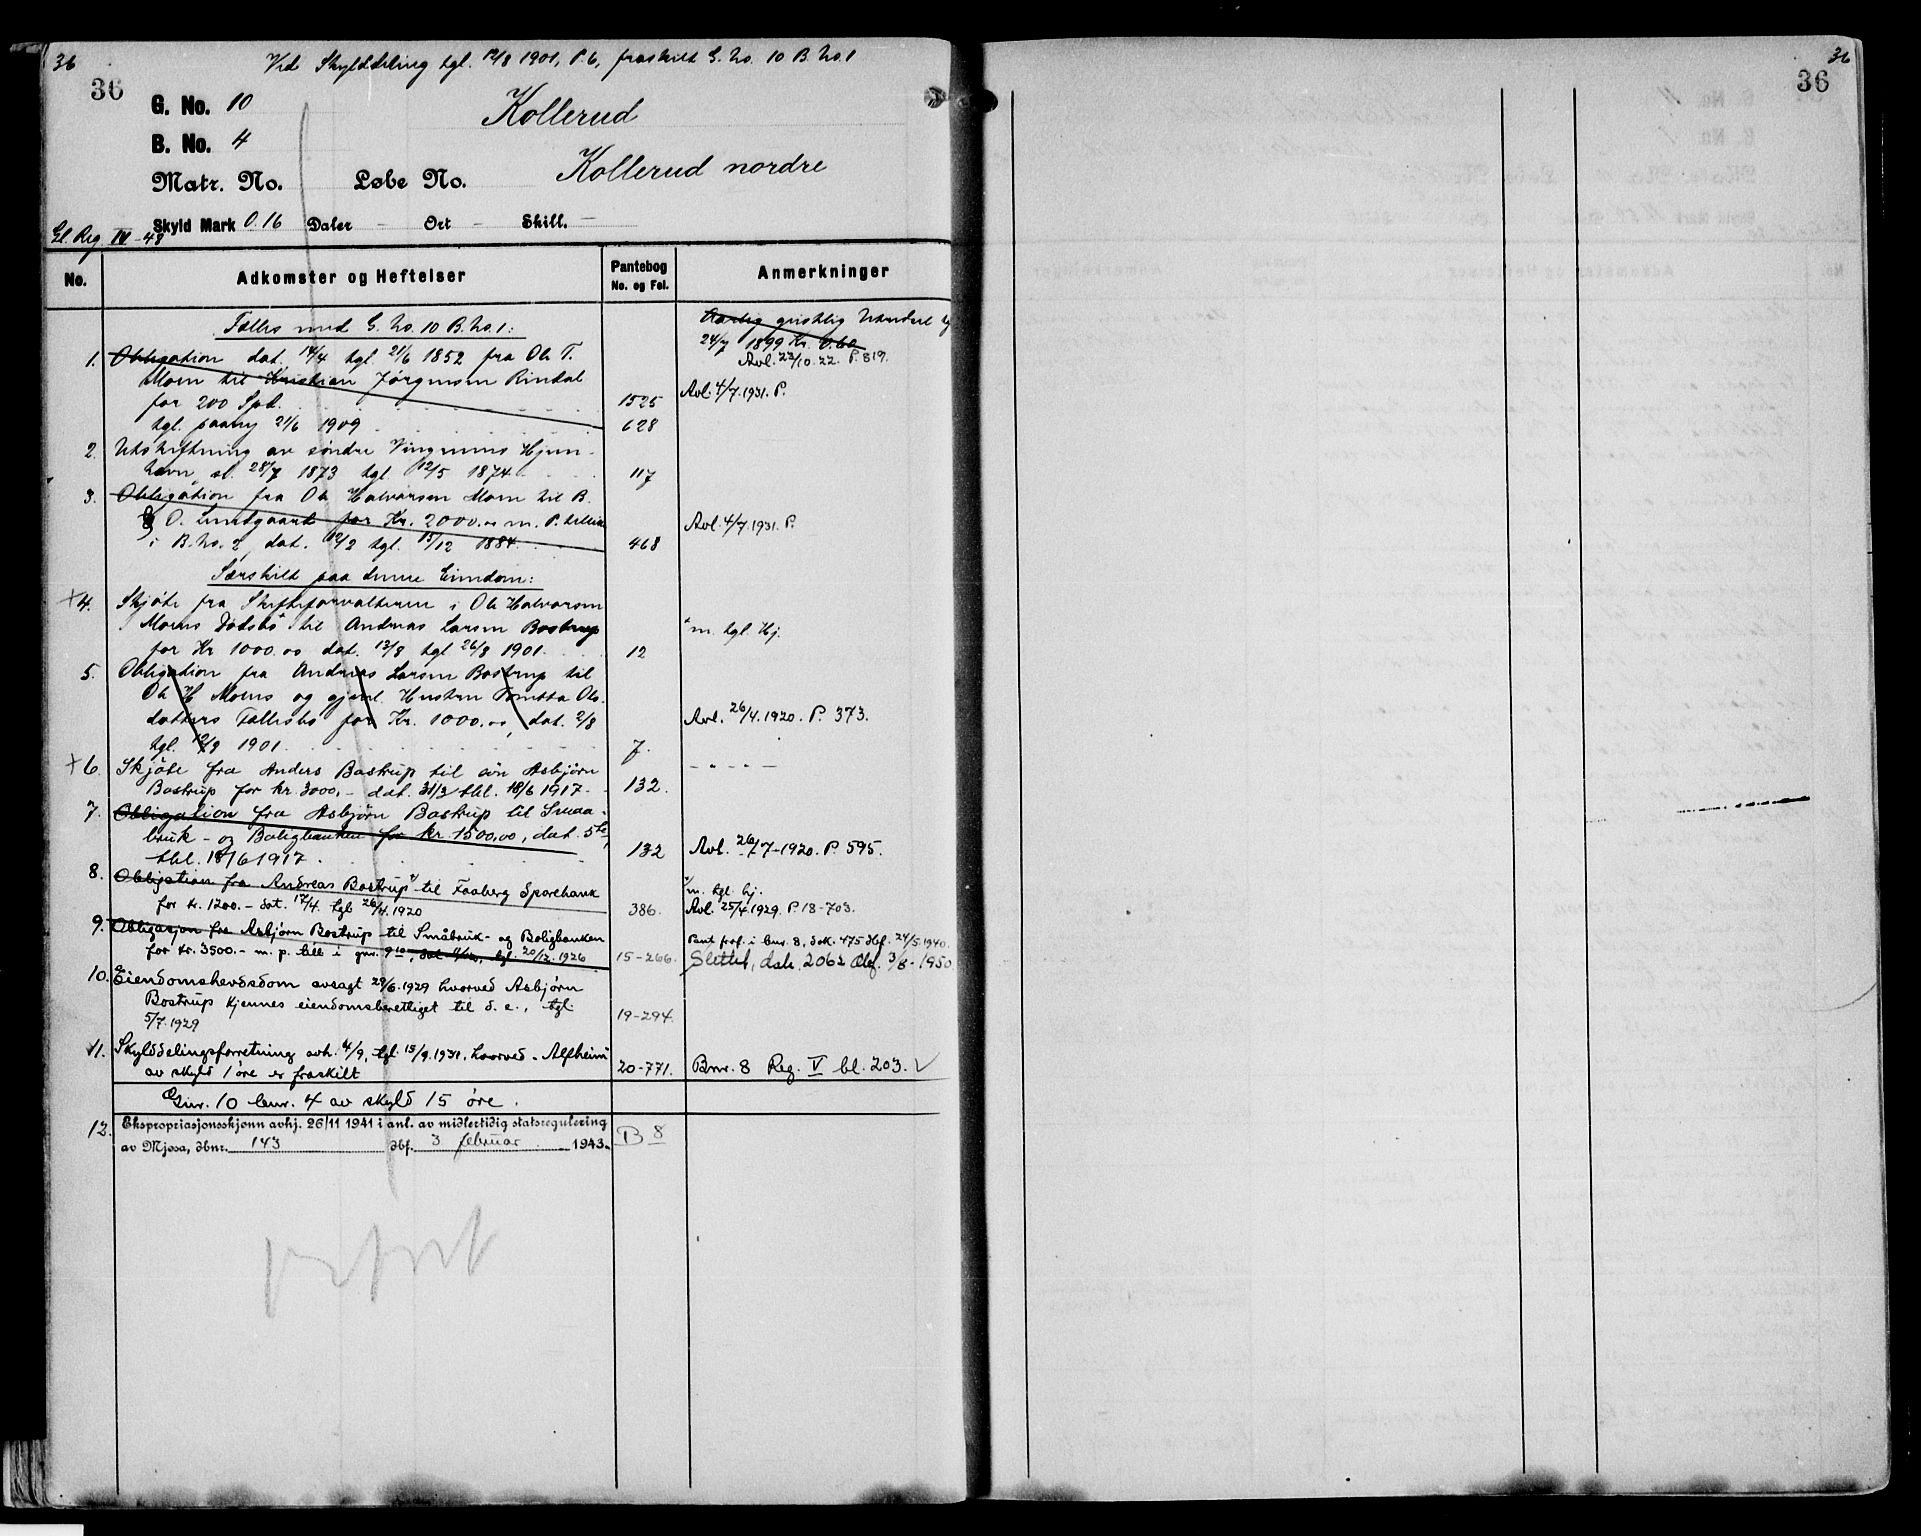 36
Ved Skylddeling tgl. 12/8 1901, P. 6, fraskilt G. No. 10 B. No. 1
36
G. No. 10 Kollerud
B. No. 4
Matr. No. Løbe No. Kollerud nordre
Skyld Mark 0.16 Daler - Ort - Skill. -
Gl. Reg IV - 48
No. Adkomster og Heftelser Pantebog No. og Fol. Anmerkninger
Fælles med G. No. 10 B. No. 1:
Aarlig geistlig Utredsel
24/7 1899 Kr. 0.60
Avl. 23/10.22. P. 819.
1. Obligation dat. 14/4 tgl. 21/6 1852 fra Ole T.
Moen til Kristian Jørgensen Rindal
for 200 Spd. 1525 Avl. 4/7.1931. P.
tgl. paany 21/6 1909 628
2. Utskiftning av søndre Vingroms Hjem-
havn, sl. 28/7 1873 tgl. 12/5 1874 117
3. Obligation fra Ole Halvorsen Moen til B.
O. Lundgaard for Kr. 2000.00 m. P. tillike Avl. 4/7.1931. P.
i B. No. 2, dat. 12/2 tgl. 15/12 1884. 468
Særskilt paa denne Eiendom:
+4. Skjøte fra Skifteforvalteren i Ole Halvorsen
Moens Dødsbo til Andreas Larsen Bostrup " m. tgl. Hj.
for Kr 1000.00 dat. 13/8 tgl 26/8 1901. 12
5. Obligation fra Andreas Larsen Bostrup til
Ole H Moens og gjenl. Hustru Ols-
datters Fællesbo for Kr. 1000.00, dat. 2/8 Avl. 26/4.1920. P. 373.
tgl. 12/9 1901. 7.
+6. Skjøte fra Anders Bostrup til søn Asbjørn - " - " -
Bostrup for kr. 3000,- dat. 31/3 tbl. 18/6 1917. 132.
7. Obligation fra Asbjørn Bostrup til Smaa-
bruk- og Boligbanken for kr. 1500,00, dat. 5 132 Avl. 26/7-1920. P. 595.
tbl. 18/6 1917.
8. Obligation fra Andreas Bostrup" til Faaberg Sparebank " m. tgl. hj.
for kr. 1200.- dat. 17/4. tgl 26/4.1920 386. Avl. 25/4.1929. P. 18-703.
9. Obligasjon fra Asbjørn Bostrup til Småbruk- og Boligbanken Pant fraf. i bnr. 8, dok. 475 dbf. 24/5.1940.
for kr. 3500.- m. p. till. i gnr. 9, tgl. 20/12.1926 15-266. Slettet, dok. 2062 dbf. 3/8-1950
10. Eiendomshevdsdom avsagt 29/6.1929 hvorved Asbjørn
Bostrup kjennes eiendomsberettiget til d. e., tgl. 19-294.
5/7.1929
11. Skylddelingsforretning avh. 4/9, tgl. 15/9.1931, hvorved - Alfheim
av skyld 1 øre er fraskilt 20-771. Bnr. 8 Reg. V bl. 203. ✓
Gnr. 10 bnr. 4 av skyld 15 øre.
12. Ekspropriasjonsskjønn avhj. 26/11 1941 i anl. av midlertidig statsregulering
av Mjøsa, dbnr. 143 dbf. 3 februar 1943. B 8
36
36